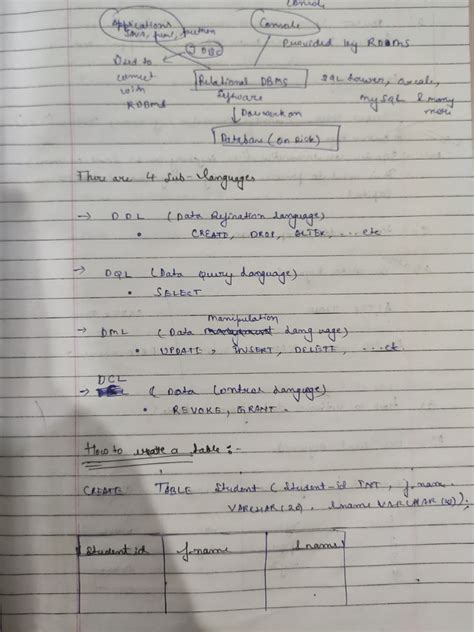 Console
Applications
Java, fun, python
Console
JDBC
Provided by RDBMS
Used to
connect
with
RDBMS
Relational DBMS
Software
SQL Server, oracle,
MySQL & many
more
Do work on
Database (on Disk)
There are 4 Sub-languages
→ DDL (Data Defination language)
• CREATE, DROP, ALTER, ... etc
→ DQL (Data Query language)
• SELECT
Manipulation
→ DML (Data Language)
• UPDATE, INSERT, DELETE, ... etc.
DCL
→ (Data Control Language)
• REVOKE, GRANT.
How to create a table :-
CREATE TABLE Student (Student-id INT, f-name
VARCHAR(20), lname VARCHAR(20));
Student id f-name l name